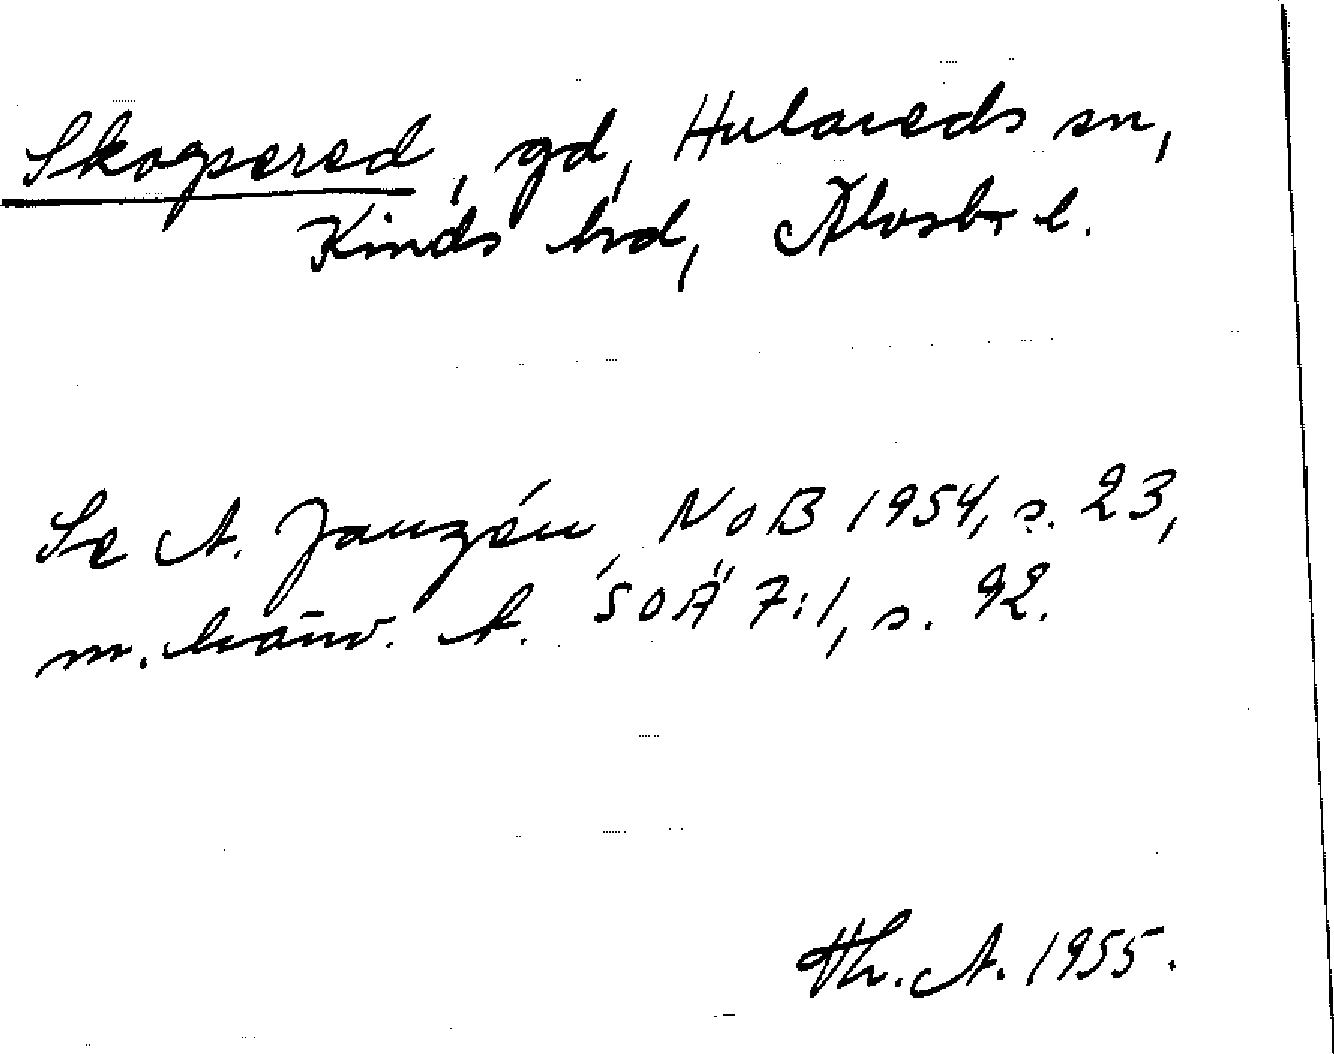 Skogsered, gd, Hulareds sn,
Kinds hd, Älvsb. l.
Se A. Janzén, NoB 1954, s. 23,
m. hänv. t. SOÄ 7:1, s. 92.
Th. A. 1955.